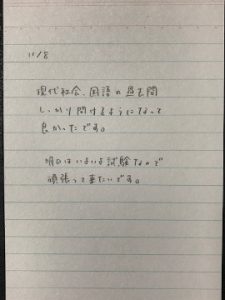 11/8
現代社会、国語の過去問
しっかり解けるようになって
良かったです。
明日はいよいよ試験なので
頑張って来たいです。